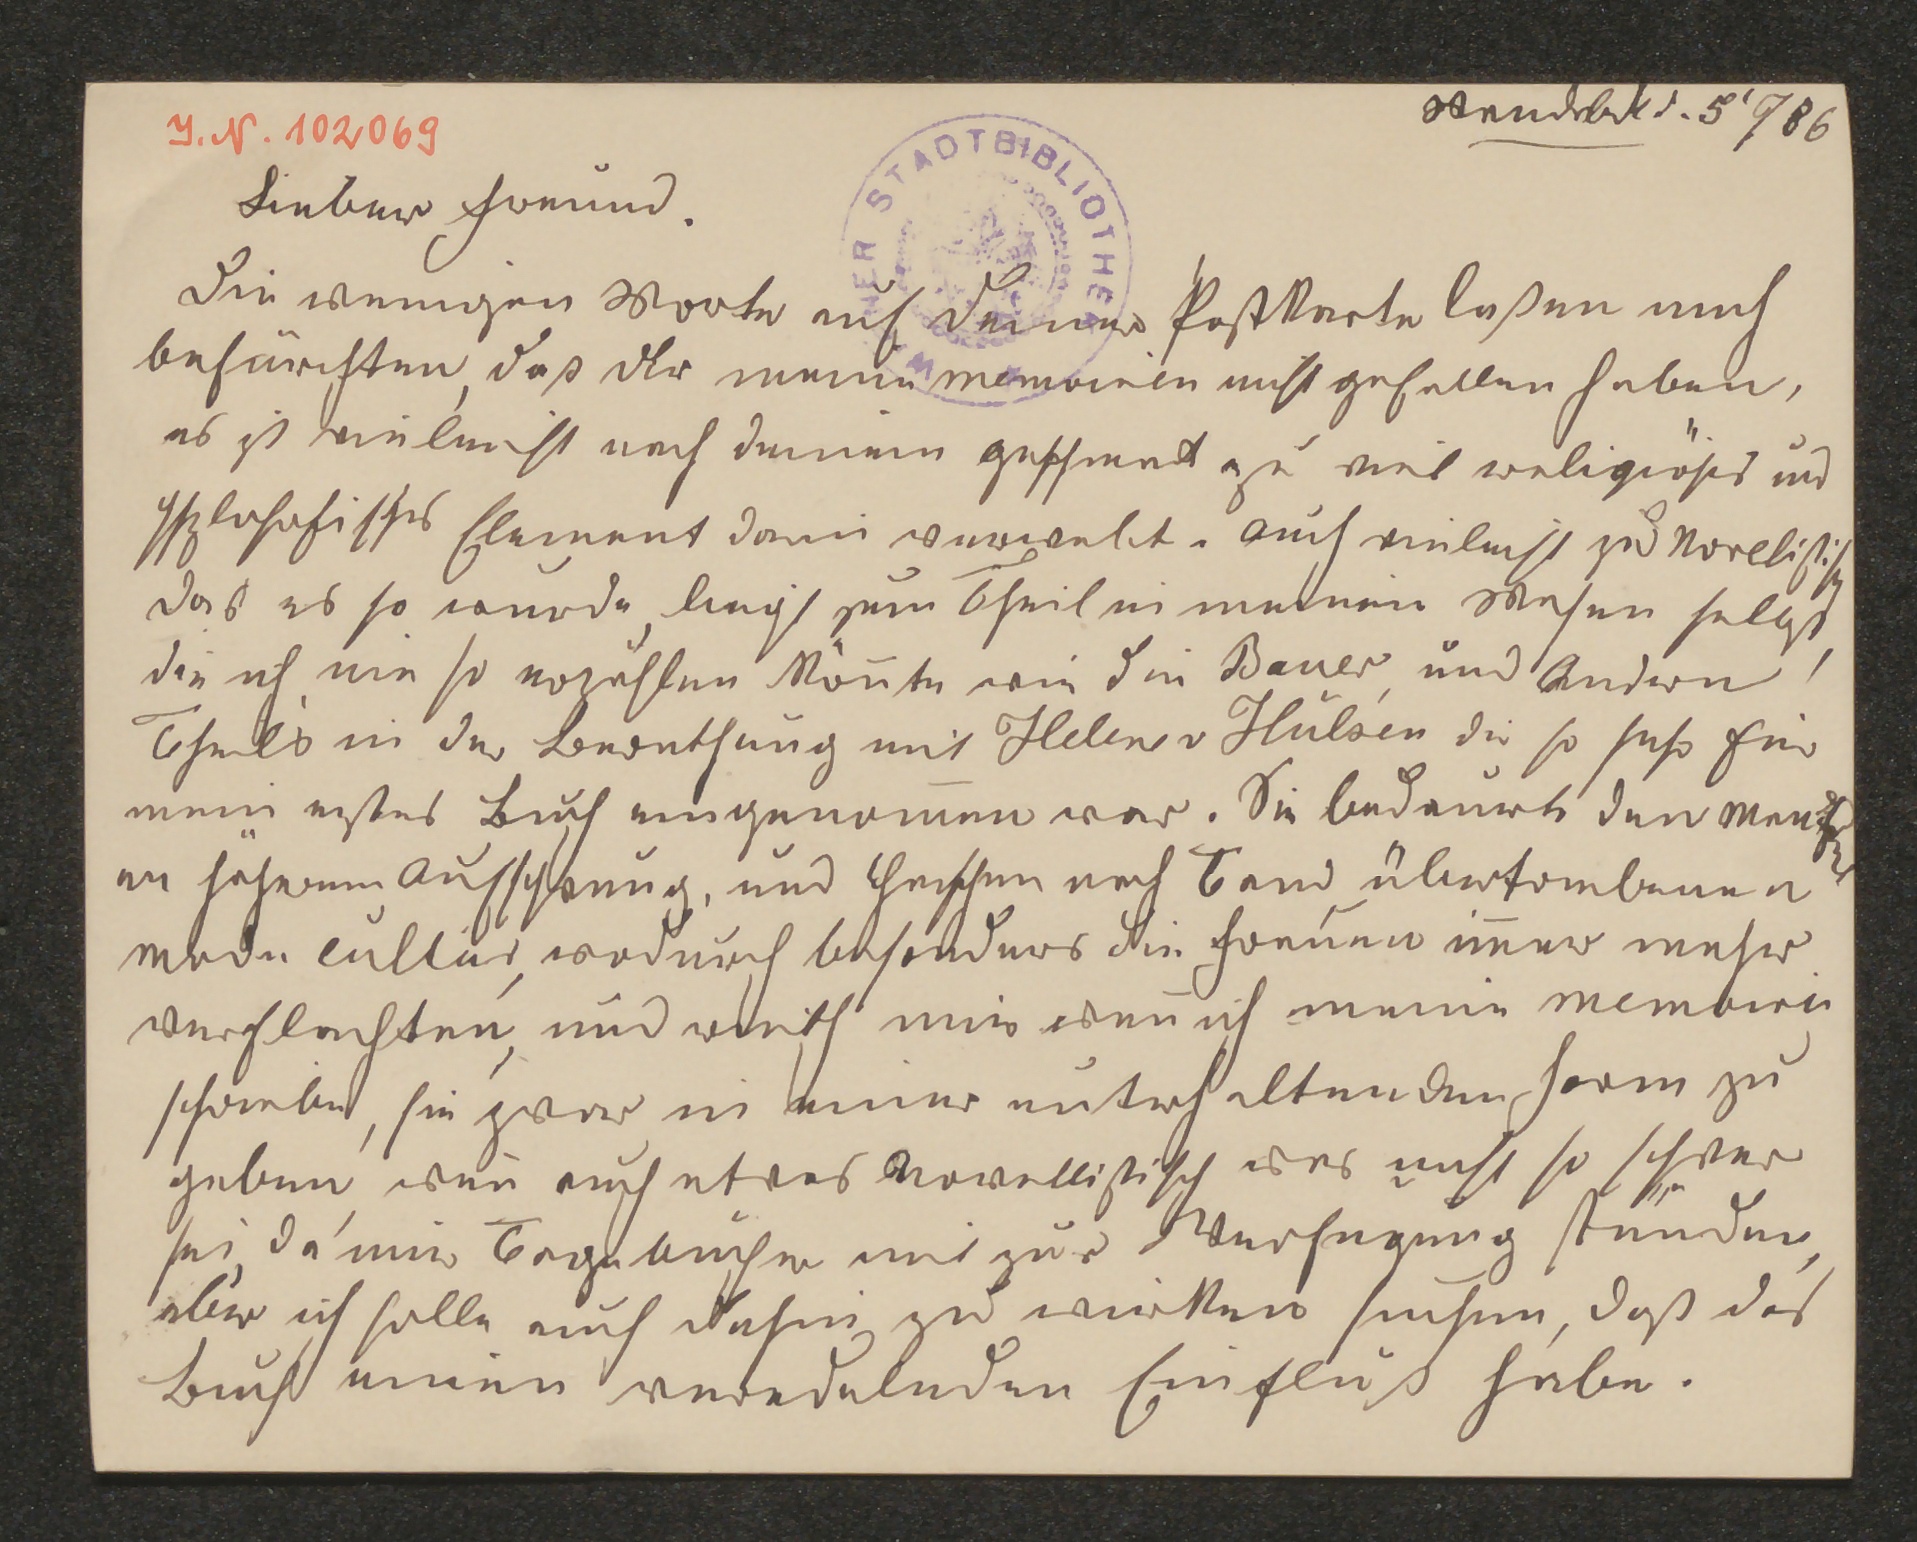 J. N. 102069
WIENER STADTBIBLIOTHEK
d. 5/7 86
Lieber Freund.
Die wenigen Worte auf Deiner Postkarte laßen mich
befürchten, daß Dir meine Memoiren nicht gefallen haben,
es ist vielleicht nach deinem Geschmack zu viel religiöses und
Element darin verwebt. Auch vielleicht zu Novellistisch
Das es so wurde, liegt zum Theil in meinem Wesen selbst,
die ich nie so erzählen könnte wie die Bauer, und Andern
Theils in der Berathung mit Helene v Hülsen die so sehr für
mein erstes Buch eingenommen war. Sie bedauerte den Mangel
an höherem Aufschwung, und Haschen nach Tand übertriebener
Mode cultur, wodurch besonders die Frauen im̄er mehr
verflachten, und rieth mir wen̄ ich meine Memoiren
schreibe, sie zwar in einer unterhaltenden Form zu
geben, wen̄ auch etwas Novellistisch was nicht so schwer
sei, da mir Tagebücher mit zur Verfügung stünden,
aber ich solle auch dahin zu wirken suchen, daß das
Buch einen veredelnden Einfluß habe.